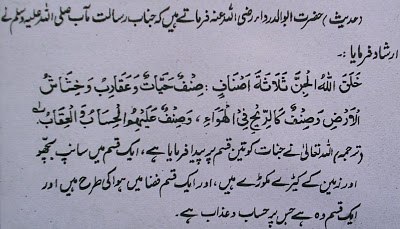 (حدیث) حضرت ابوالدرداء رضی اللہ عنہ فرماتے ہیں کہ جناب رسالت مآب صلی اللہ علیہ وسلم نے
ارشاد فرمایا :-
خَلَقَ اللهُ الْجِنَّ ثَلَاثَةَ اَصْنَافٍ : صِنْفٌ حَيَّاتٌ وَعَقَارِبُ وَخَشَاشُ
الْاَرْضِ وَصِنْفٌ كَالرِّيْحِ فِى الْهَوَاءِ ، وَصِنْفٌ عَلَيْهِمُ الْحِسَابُ وَالْعِقَابُ
(ترجمہ) اللہ تعالیٰ نے جنات کو تین قسم پر پیدا فرمایا ہے، ایک قسم میں سانپ بچھو
اور زمین کے کیڑے مکوڑے ہیں، اور ایک قسم فضا میں ہوا کی طرح ہیں اور
ایک قسم وہ ہے جس پر حساب و عذاب ہے۔